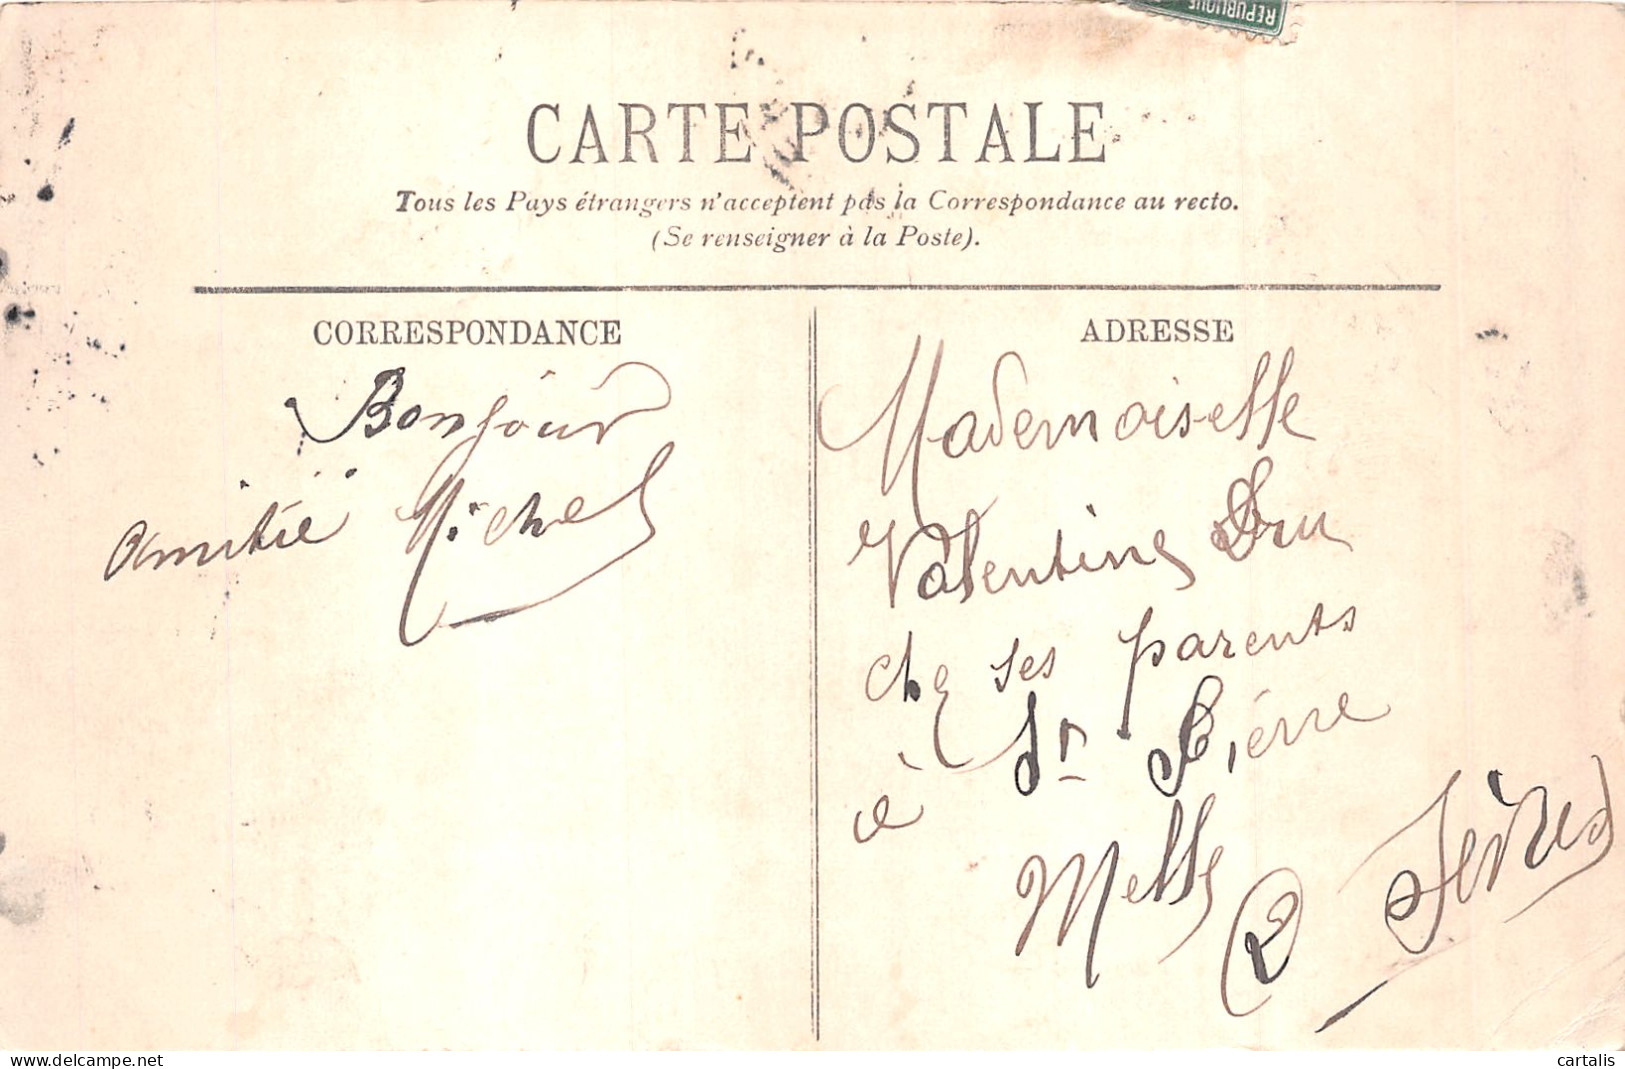 REPUBLIQUE
CARTE POSTALE
Tous les Pays étrangers n'acceptent pas la Correspondance au recto.
(Se renseigner à la Poste).
CORRESPONDANCE
Bonjour
amitié Michel
ADRESSE
Mademoiselle
Valentine Dru
che ses parents
à St Pierre
Melle
2 Sèvres
cartalis
www.delcampe.net